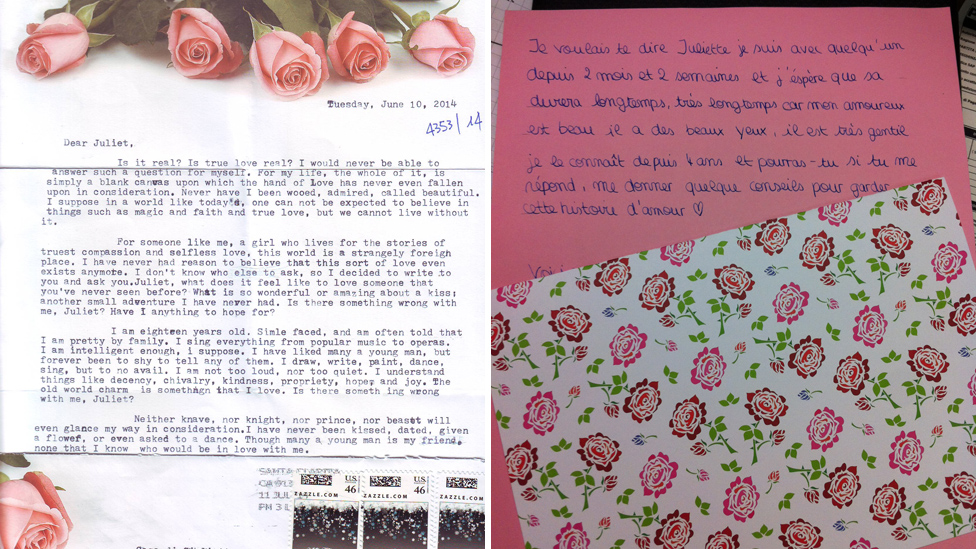 Tuesday, June 10, 2014
4353/14
Dear Juliet,
Is it real? Is true love real? I would never be able to
answer such a question for myself. For my life, the whole of it, is
simply a blank canvas upon which the hand of love has never even fallen
upon in consideration. Never have I been wooed, admired, called beautiful.
I suppose in a world like today's, one can not be expected to believe in
things such as magic and faith and true love, but we cannot live without
it.
For someone like me, a girl who lives for the stories of
truest compassion and selfless love, this world is a strangely foreign
place. I have never had reason to believe that this sort of love even
exists anymore. I don't know who else to ask, so I decided to write to
you and ask you.Juliet, what does it feel like to love someone that
you've never seen before? What is so wonderful or amazing about a kiss;
another small adventure I have never had. Is there something wrong with
me, Juliet? Have I anything to hope for?
I am eighteen years old. Simle faced, and am often told that
I am pretty by family. I sing everything from popular music to operas.
I am intelligent enough, i suppose. I have liked many a young man, but
forever been to shy to tell any of them. I draw, write, paint, dance,
sing, but to no avail. I am not too loud, nor too quiet. I understand
things like decency, chivalry, kindness, propriety, hope, and joy. The
old world charm is something that I love. Is there someth ing wrong
with me, Juliet?
Neither knave, nor knight, nor prince, nor beast will
even glance my way in consideration.I have never been kissed, dated, given
a flower, or even asked to a dance. Though many a young man is my friend,
none that I know who would be in love with me.
SANTA CLARITA
CA 913
11 JUL
PM 3 L
U.S. 46
ZAZZLE.COM
U.S. 46
ZAZZLE.COM
U.S. 46
ZAZZLE.COM
Je voulais te dire Juliette je suis avec quelqu'un
depuis 2 mois et 2 semaines et j'éspère que sa
durera longtemps, très longtemps car mon amoureux
est beau il a des beaux yeux, il est très gentil
je le connaît depuis 4 ans et pourras-tu si tu me
répond, me donner quelque conseils pour garder
cette histoire d'amour ♡